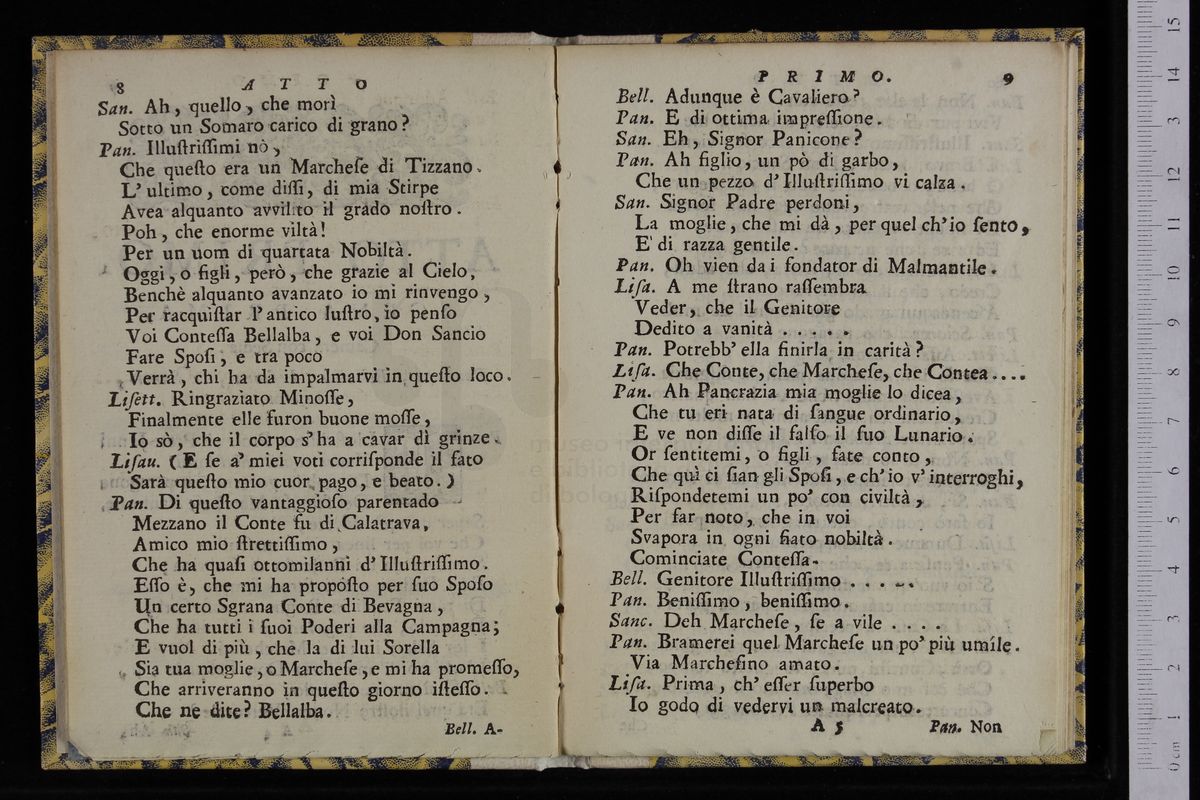 8 A T T O
San. Ah, quello, che morì
Sotto un Somaro carico di grano?
Pan. Illuſtriſſimi nò,
Che queſto era un Marcheſe di Tizzano.
L' ultimo, come diſſi, di mia Stirpe
Avea alquanto avvilito il grado noſtro.
Poh, che enorme viltà!
Per un uom di quartata Nobiltà.
Oggi, o figli, però, che grazie al Cielo,
Benchè alquanto avanzato io mi rinvengo,
Per racquiſtar l'antico luſtro, io penſo
Voi Conteſſa Bellalba, e voi Don Sancio
Fare Spoſi, e tra poco
Verrà, chi ha da impalmarvi in queſto loco.
Liſett. Ringraziato Minoſſe,
Finalmente elle furon buone moſſe,
Io sò, che il corpo s'ha a cavar di grinze.
Liſau. (E ſe a' miei voti corriſponde il fato
Sarà queſto mio cuor pago, e beato.)
Pan. Di queſto vantaggioſo parentado
Mezzano il Conte fu di Calatrava,
Amico mio ſtrettiſſimo,
Che ha quaſi ottomilanni d'Illuſtriſſimo.
Eſſo è, che mi ha propoſto per ſuo Spoſo
Un certo Sgrana Conte di Bevagna,
Che ha tutti i ſuoi Poderi alla Campagna;
E vuol di più, che la di lui Sorella
Sia tua moglie, o Marcheſe, e mi ha promeſſo,
Che arriveranno in queſto giorno iſteſſo.
Che ne dite? Bellalba.
Bell. A-
P R I M O. 9
Bell. Adunque è Cavaliero?
Pan. E di ottima impreſſione.
San. Eh, Signor Panicone?
Pan. Ah figlio, un pò di garbo,
Che un pezzo d'Illuſtriſſimo vi calza.
San. Signor Padre perdoni,
La moglie, che mi dà, per quel ch'io ſento,
E' di razza gentile.
Pan. Oh vien dai fondator di Malmantile.
Liſa. A me ſtrano raſſembra
Veder, che il Genitore
Dedito a vanità . . . . .
Pan. Potrebb' ella finirla in carità?
Liſa. Che Conte, che Marcheſe, che Contea....
Pan. Ah Pancrazia mia moglie lo dicea,
Che tu eri nata di ſangue ordinario,
E ve non diſſe il falſo il ſuo Lunario.
Or ſentitemi, o figli, fate conto,
Che quì ci ſian gli Spoſi, e ch'io v'interroghi,
Riſpondetemi un po' con civiltà,
Per far noto, che in voi
Svapora in ogni fiato nobiltà.
Cominciate Conteſſa-
Bell. Genitore Illuſtriſſimo . . . . .
Pan. Beniſſimo, beniſſimo.
Sanc. Deh Marcheſe, ſe a vile . . . .
Pan. Bramerei quel Marcheſe un po' più umíle.
Via Marcheſino amato.
Liſa. Prima, ch' eſſer ſuperbo
Io godo di vedervi un malcreato.
A 5 Pan. Non